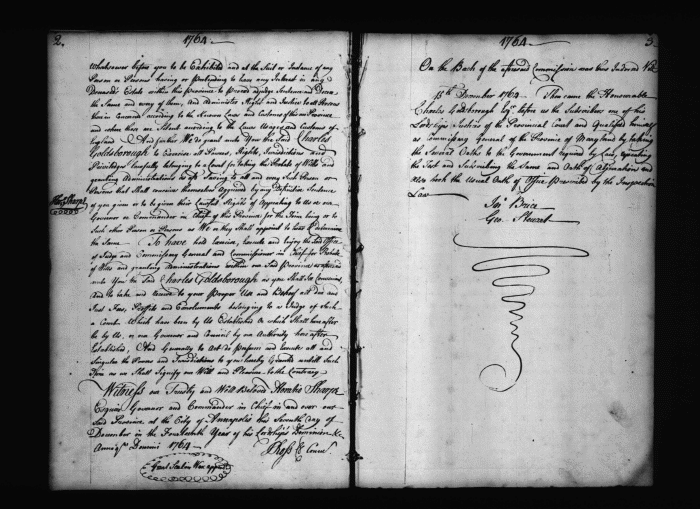 2. 1764
Whatsoever before you to be Exhibited and at the Suit or Instance of any
Person or Persons having or pretending to have any Interest in any
Deceased's Estate within this Province to proceed Judge Sentence and Decree
the Same and every of them, And Administer Right and Justice to all Persons
therein Concerned according to the known Laws and Customs of this our Province
and where there are Silent according to the Laws Usages and Customs of
England And further We do grant unto You the said Charles
Goldsborough to Exercise all Powers Rights, Jurisdictions and
Priviledges lawfully belonging to a Court for taking the Probate of Wills and
granting Administrations Yet Saving to all and every Such Person or
Persons that Shall conceive themselves Aggrieved by any Definitive Sentence
of you given or to be given their Lawful Right of Appealing to Us or our
Governor or Commander in Chief of this Province for the time being or to
Such other Person or Persons as We or they Shall appoint to hear & Determine
the Same To have hold exercise and Enjoy the said Office
of Judge and Commissary General and Commissioner in Chief for Probate
of Wills and granting Administrations within our Said Province as aforesaid
unto You the said Charles Goldsborough as you Shall See Convenient
And to take and receive to your Proper Use and Behoof all Due and
Just Fees, Profits and Emoluments belonging to a Judge of Such
a Court Which have been by Us Established or which Shall hereafter
be by Us, or our Governor and Council by our Authority hereafter
Established, And Generally to Act do perform and execute all and
Singular the Powers and Jurisdictions to you hereby Granted untill Such
Time as we Shall Signify our Will and Pleasure to the Contrary
Horo Sharpe
Witness our Trusty and Well Beloved Horatio Sharpe
Esquire Governor and Commander in Chief in and over our
said Province at the City of Annapolis this Seventh day of
December in the Fourteenth Year of his Lordship's Dominion &c
Annoq Domini 1764
Ross Cl Council
Great Seal in Wax appt
1764 3.
On the Back of the aforesaid Commission was thus Indorsed Viz
15th December 1764. Then came the Honourable
Charles Goldsborough Esqr before us the Subscribers one of his
Lordships Justices of the Provincial Court and Qualified himself
as Commissary General of the Province of Maryland by taking
the Several Oaths to the Government required by Law, repeating
the Test and Subscribing the Same and Oath of Abjuration and
also took the Usual Oath of Office prescribed by the Inspection
Law
Jno Brice
Geo. Steuart